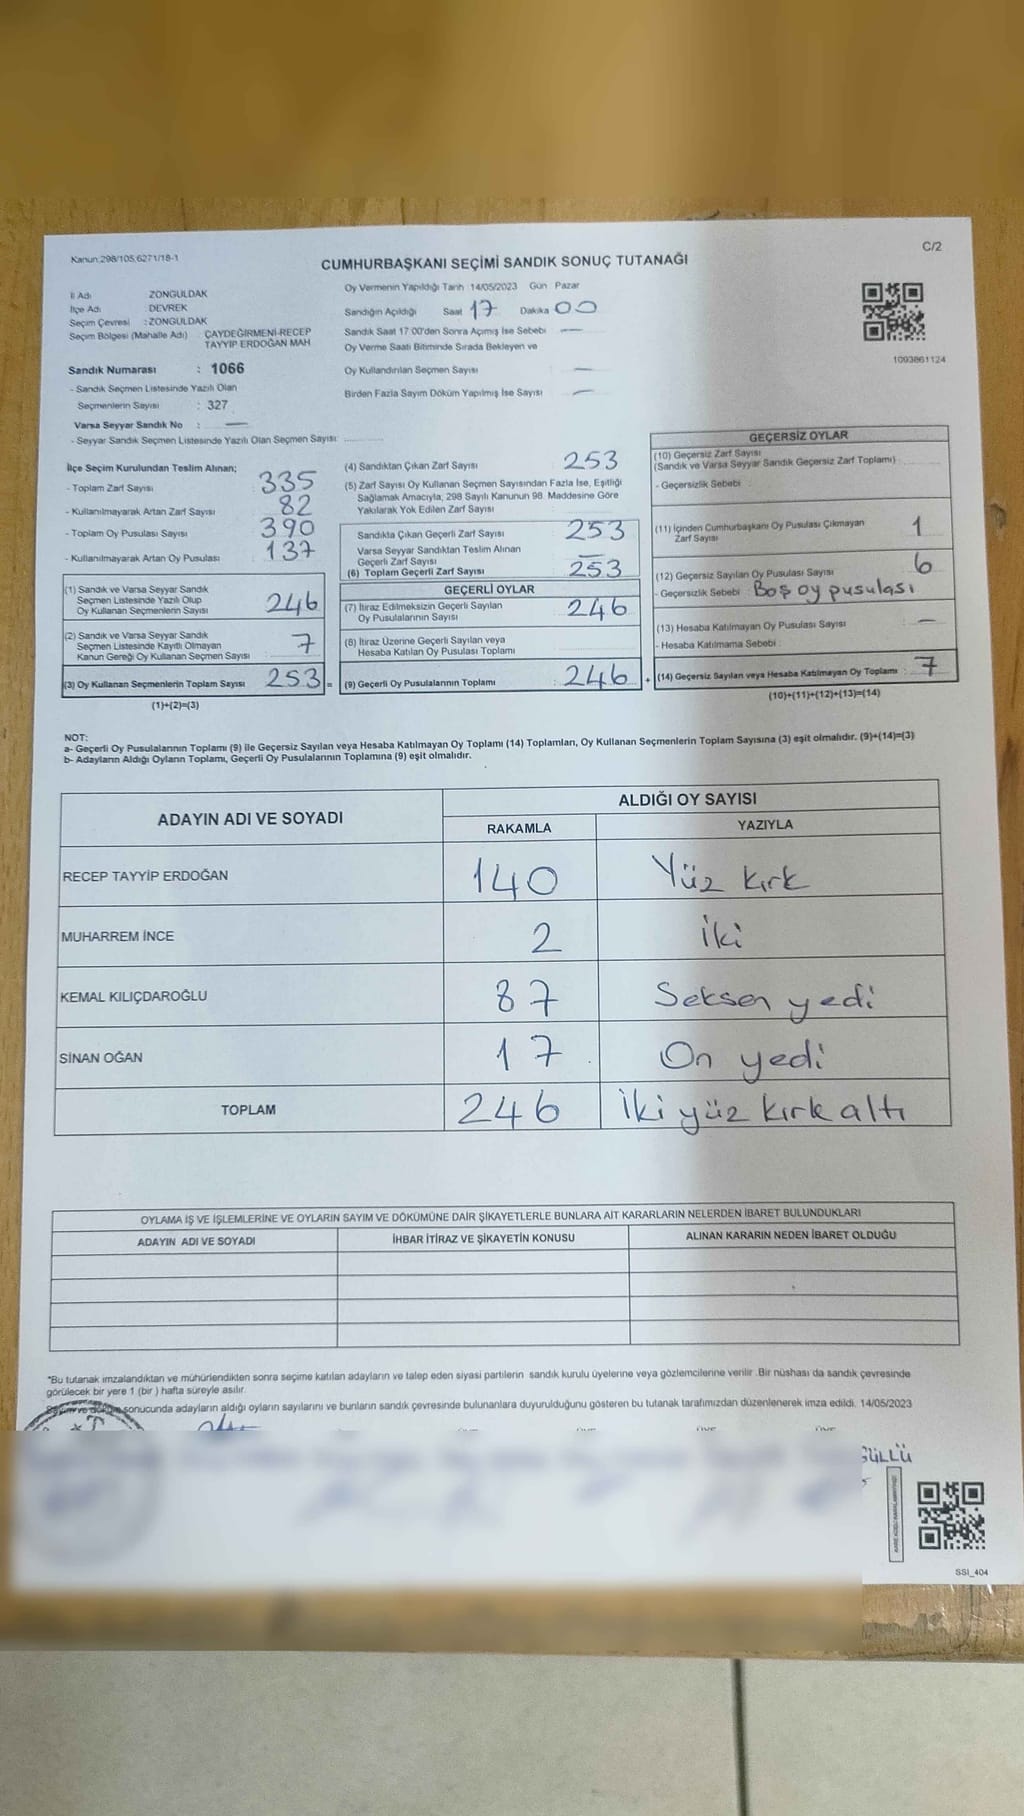 Kanun:298/105,6271/18-1
C/2
CUMHURBAŞKANI SEÇİMİ SANDIK SONUÇ TUTANAĞI
İl Adı ZONGULDAK
İlçe Adı DEVREK
Seçim Çevresi : ZONGULDAK
Seçim Bölgesi (Mahalle Adı) : ÇAYDEĞİRMENİ-RECEP
TAYYİP ERDOĞAN MAH
Sandık Numarası : 1066
- Sandık Seçmen Listesinde Yazılı Olan
Seçmenlerin Sayısı : 327
Varsa Seyyar Sandık No : —
- Seyyar Sandık Seçmen Listesinde Yazılı Olan Seçmen Sayısı: ............
Oy Vermenin Yapıldığı Tarih :14/05/2023 Gün Pazar
Sandığın Açıldığı Saat 17 Dakika 00
Sandık Saat 17:00'den Sonra Açımış İse Sebebi —
Oy Verme Saati Bitiminde Sırada Bekleyen ve
Oy Kullandırılan Seçmen Sayısı : —
Birden Fazla Sayım Döküm Yapılmış İse Sayısı : —
1093861124
İlçe Seçim Kurulundan Teslim Alınan;
- Toplam Zarf Sayısı 335
- Kullanılmayarak Artan Zarf Sayısı 82
- Toplam Oy Pusulası Sayısı 390
- Kullanılmayarak Artan Oy Pusulası 137
(1) Sandık ve Varsa Seyyar Sandık
Seçmen Listesinde Yazılı Olup
Oy Kullanan Seçmenlerin Sayısı 246
(2) Sandık ve Varsa Seyyar Sandık
Seçmen Listesinde Kayıtlı Olmayan
Kanun Gereği Oy Kullanan Seçmen Sayısı 7
(3) Oy Kullanan Seçmenlerin Toplam Sayısı 253 =
(1)+(2)=(3)
(4) Sandıktan Çıkan Zarf Sayısı : 253
(5) Zarf Sayısı Oy Kullanan Seçmen Sayısından Fazla İse, Eşitliği
Sağlamak Amacıyla; 298 Sayılı Kanunun 98. Maddesine Göre
Yakılarak Yok Edilen Zarf Sayısı
Sandıkla Çıkan Geçerli Zarf Sayısı : 253
Varsa Seyyar Sandıktan Teslim Alınan
Geçerli Zarf Sayısı : —
(6) Toplam Geçerli Zarf Sayısı : 253
GEÇERLİ OYLAR
(7) İtiraz Edilmeksizin Geçerli Sayılan
Oy Pusulalarının Sayısı : 246
(8) İtiraz Üzerine Geçerli Sayılan veya
Hesaba Katılan Oy Pusulası Toplamı
(9) Geçerli Oy Pusulalarının Toplamı : 246 +
GEÇERSİZ OYLAR
(10) Geçersiz Zarf Sayısı
(Sandık ve Varsa Seyyar Sandık Geçersiz Zarf Toplamı)
- Geçersizlik Sebebi :
(11) İçinden Cumhurbaşkanı Oy Pusulası Çıkmayan
Zarf Sayısı : 1
(12) Geçersiz Sayılan Oy Pusulası Sayısı : 6
- Geçersizlik Sebebi : Boş oy pusulası
(13) Hesaba Katılmayan Oy Pusulası Sayısı : —
- Hesaba Katılmama Sebebi :
(14) Geçersiz Sayılan veya Hesaba Katılmayan Oy Toplamı : 7
(10)+(11)+(12)+(13)=(14)
NOT:
a- Geçerli Oy Pusulalarının Toplamı (9) ile Geçersiz Sayılan veya Hesaba Katılmayan Oy Toplamı (14) Toplamları, Oy Kullanan Seçmenlerin Toplam Sayısına (3) eşit olmalıdır. (9)+(14)=(3)
b- Adayların Aldığı Oyların Toplamı, Geçerli Oy Pusulalarının Toplamına (9) eşit olmalıdır.
ADAYIN ADI VE SOYADI ALDIĞI OY SAYISI
RAKAMLA YAZIYLA
RECEP TAYYİP ERDOĞAN 140 Yüz kırk
MUHARREM İNCE 2 İki
KEMAL KILIÇDAROĞLU 87 Seksen yedi
SİNAN OĞAN 17 On yedi
TOPLAM 246 İki yüz kırk altı
OYLAMA İŞ VE İŞLEMLERİNE VE OYLARIN SAYIM VE DÖKÜMÜNE DAİR ŞİKAYETLERLE BUNLARA AİT KARARLARIN NELERDEN İBARET BULUNDUKLARI
ADAYIN ADI VE SOYADI İHBAR İTİRAZ VE ŞİKAYETİN KONUSU ALINAN KARARIN NEDEN İBARET OLDUĞU
*Bu tutanak imzalandıktan ve mühürlendikten sonra seçime katılan adayların ve talep eden siyasi partilerin sandık kurulu üyelerine veya gözlemcilerine verilir. Bir nüshası da sandık çevresinde
görülecek bir yere 1 (bir ) hafta süreyle asılır.
Sayım ve döküm sonucunda adayların aldığı oyların sayılarını ve bunların sandık çevresinde bulunanlara duyurulduğunu gösteren bu tutanak tarafımızdan düzenlenerek imza edildi. 14/05/2023
GÜLLÜ
SSI_404